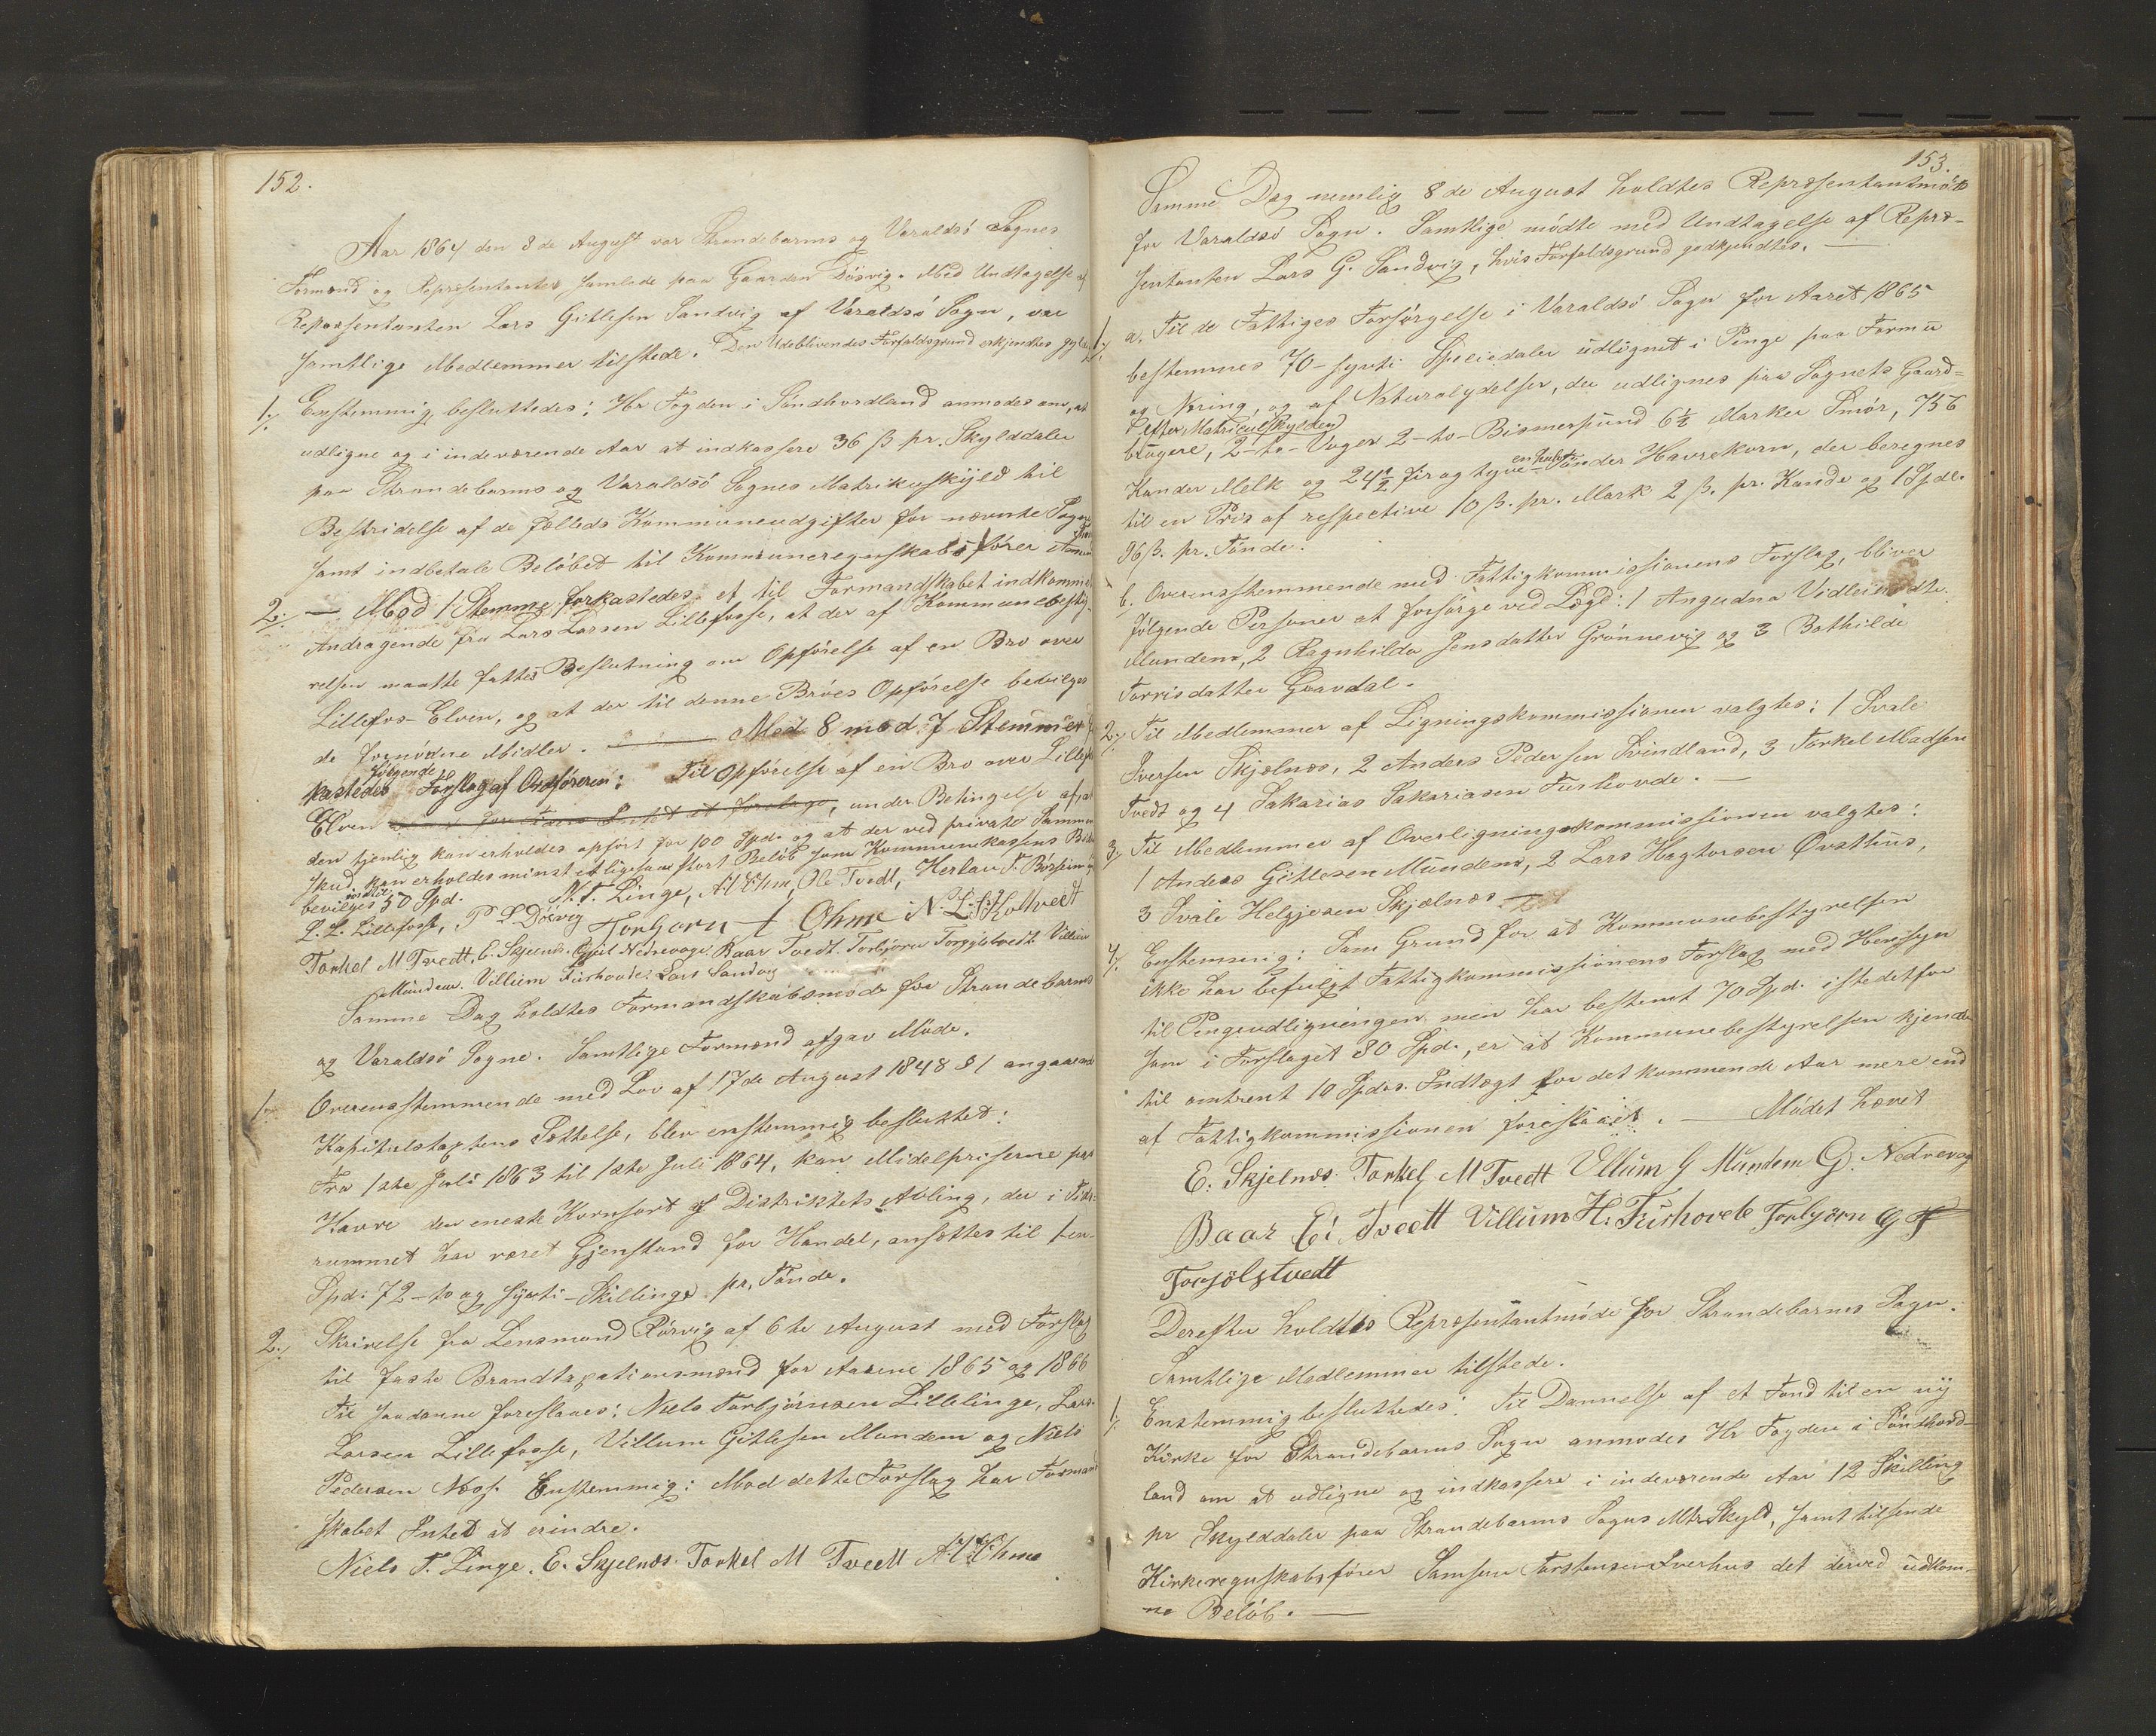 152.
Aar 1864 den 8de August var Strandebarms og Varaldsö Sognes
Formænd og Repræsentanter samlede paa Gaarden Dösvig. Med Undtagelse af
Repræsentanten Lars Gitlesen Sandvig af Varaldsö Sogn, var
samtlige Medlemmer tilstede. Den Udeblivendes Forfaldsgrund erkjendtes gyld
1/. Enstemmig besluttedes: Hr Fogden i Söndhordland anmodes om, at
udligne og i indeværende Aar at indkassere 36 ß pr. Skylddaler
paa Strandebarms og Varaldsö Sognes Matrikuskyld til
Bestridelse af de fælleds Kommuneudgifter for nævnte Sogne
samt indbetale Belöbet til Kommuneregnskabsförer
2/. — Mod 1 Stemme forkastedes et til Formandskabet indkommet
Andragende fra Lars Larsen Lillefosse, at der af Kommunebesty-
relsen maatte fattes Beslutning om Opförelse af en Bro over
Lillefos-Elven, og at der til denne Bröes Opförelse bevilges
de fornödne Midler. — Med 8 mod 7 Stemmer for
kastedes følgende Forslag af Ordföreren: Til Opförelse af en Bro over Lillefos
Elven under Betingelse af, at
den tjenlig kan erholdes opfört for 100 Spd. og at der ved private Sammen
skud kan erholdes mindst et ligesaa stort Belöb som Kommunekassens Bidr
bevilges indtil 50 Spd. N. T. Linge, Ole Tvedt,
L. L. Lillefosse, P L Dösvig Torbjorn T Ohme N. L. Koltvedt
Torkel M Tvedt, E. Skjelnæs. Baar Tvedt. Torbjørn Torgjelstvedt Villum
Mundem. Villum Furhovde. Lars Sandvig
Samme Dag holdtes Formandskabsmöde for Strandebarms
og Varaldsö Sogne. Samtlige Formænd afgav Möde.
1. Overensstemmende med Lov af 17de August 1848 § 1 angaaende
Kapitulstaxtens Sættelse, blev enstemmig besluttet:
Fra 1ste Juli 1863 til 1ste Juli 1864, kan Midelpriserne paa
Havre den eneste Kornsort af Distriktets Avling, der i Tids-
rummet har været Gjenstand for Handel, ansættes til 1 en
Spd: 72 - to og sÿvti - Skilling pr. Tönde.
2./ Skrivelse fra Lensmand Rörvig af 6te August med Forslag
til faste Brandtaxationsmænd for Aarene 1865 og 1866
Til saadanne foreslaaes: Niels Torbjörnsen Lillelinge, Lars
Larsen Lillefosse, Villum Gitlesen Mundem og Niels
Pedersen Næs. Enstemmig: Mod dette Forslag har Formand
skabet Intet at erindre.
Niels T. Linge. E. Skjelnæs. Torkel M Tvedt A T Ohme
153.
Samme Dag nemlig 8de August holdtes Repræsentantmöde
for Varaldsö Sogn. Samtlige mödte med Undtagelse af Repræ-
sentanten Lars G. Sandvig, hvis Forfaldsgrund godkjendtes. —
1/. a. Til de Fattiges Forsörgelse i Varaldsö Sogn for Aaret 1865
bestemmes 70 - syvti Speciedaler udlignet i Penge paa Formue
og Næring, og af Naturalydelser, der udlignes paa Sognets Gaard=
brugere, (efter Matriculskylden) 2 - to - Voger 2 - to - Bismerpund 6½ Marker Smör, 756
Kander Melk og 24½ fir og tyve en halv Tönder Havrekorn, der beregnes
til en Pris af respective 10 ß. pr. Mark 2 ß. pr. Kande og 1 Spdlr.
96 ß. pr. Tönde.
b. Overensstemmende med Fattigkommissionens Forslag, bliver
fölgende Personer at forsörge ved Lægd: 1 Angudna Vidleiksdtr.
Mundem, 2 Ragnhilda Jensdatter Grönnevig og 3 Bothilde
Torrisdatter Gravdal.
2/. Til Medlemmer af Ligningskommissionen valgtes: 1 Ivale
Iversen Skjelnæs, 2 Anders Pedersen Svindland, 3 Torkel Madsen
Tvedt og 4 Sakarias Sakariasen Furhovde. —
3/. Til Medlemmer af Overligningskommissionen valgtes:
1 Anders Gitlesen Mundem, 2 Lars Hagtorsen Øvsthus,
3 Ivale Helgjesen Skjælnæs —
4/. Enstemmig: Som Grund for at Kommunebestyrelsen
ikke har befulgt Fattigkommissionens Forslag med Hensyn
til Pengeudligningen men har bestemt 70 Spd. istedetfor
som i Forslaget 80 Spd., er at Kommunebestyrelsen kjender
til omtrent 10 Spdrs. Indtægt for det kommende Aar mere end
af Fattigkommissionen foreslaaet. — Mödet hævet
E. Skjelnæs. Torkel M Tvedt Villum G Mundem G. Nedrevog
Baar Ei Tvedt Villum H. Furhovde Torbjørn G
Torgjölstvedt
Derefter holdtes Repræsentantmöde for Strandebarms Sogn.
Samtlige Medlemmer tilstede.
1/. Enstemmig besluttedes: Til Dannelse af et Fond til en nÿ
Kirke for Strandebarms Sogn anmodes Hr Fogden i Söndhord-
land om at udligne og indkassere i indeværende Aar 12 Skilling
pr Skylddaler paa Strandebarms Sogns Mtr Skyld, samt tilsende
Kirkeregnskabsförer Samson Torstensen Iverhus det derved udkom-
ne Belöb. —